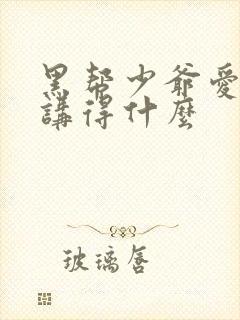 黑幫少爺愛
講得什麼
玻璃唇